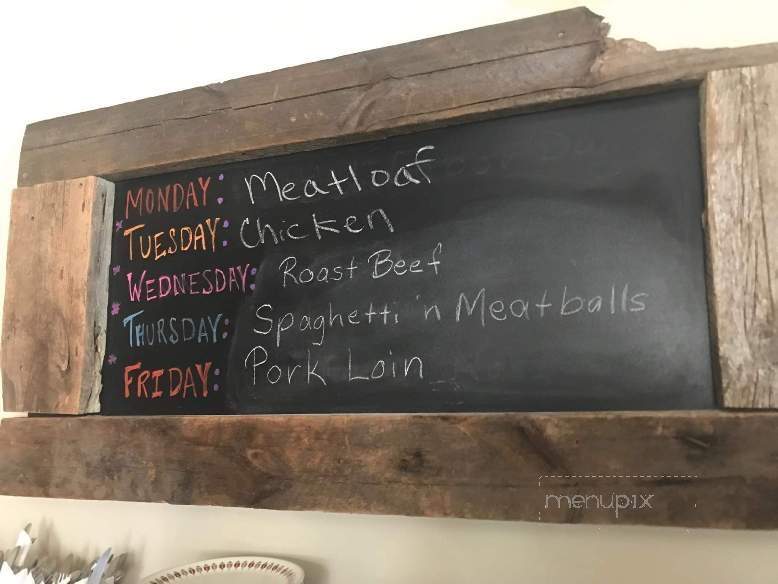 MONDAY: Meatloaf
TUESDAY: Chicken
WEDNESDAY: Roast Beef
THURSDAY: Spaghetti 'n Meatballs
FRIDAY: Pork Loin
menupix